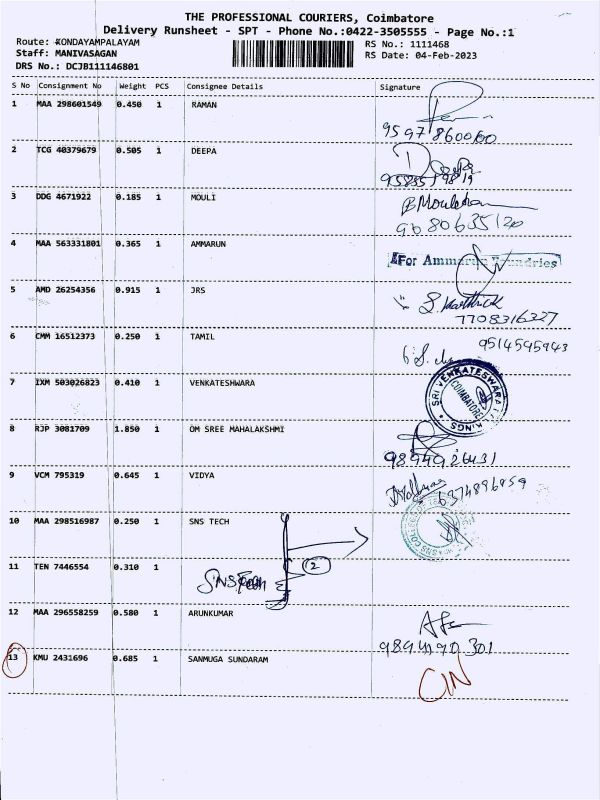 THE PROFESSIONAL COURIERS, Coimbatore
Delivery Runsheet - SPT - Phone No.:0422-3505555 - Page No.:1
Route: KONDAYAMPALAYAM
Staff: MANIVASAGAN
DRS No.: DCJB111146801
RS No.: 1111468
RS Date: 04-Feb-2023
S No Consignment No Weight PCS Consignee Details Signature
1 MAA 298601549 0.450 1 RAMAN
2 TCG 40379679 0.505 1 DEEPA
3 DDG 4671922 0.185 1 MOULI
9080635120
4 MAA 563331801 0.365 1 AMMARUN
For Ammarun Foundries
5 AMD 26254356 0.915 1 JRS
S. Karthick
7708316327
6 CMM 16512373 0.250 1 TAMIL
9514595943
7 IXM 503026823 0.410 1 VENKATESHWARA
SRI VENKATESWARA
COIMBATORE
8 RJP 3081709 1.850 1 OM SREE MAHALAKSHMI
9894926431
9 VCM 795319 0.645 1 VIDYA
6374896959
10 MAA 298516987 0.250 1 SNS TECH
11 TEN 7446554 0.310 1
SNS Tech
2
12 MAA 296558259 0.580 1 ARUNKUMAR
9894190301
13 KMU 2431696 0.685 1 SANMUGA SUNDARAM
CIN